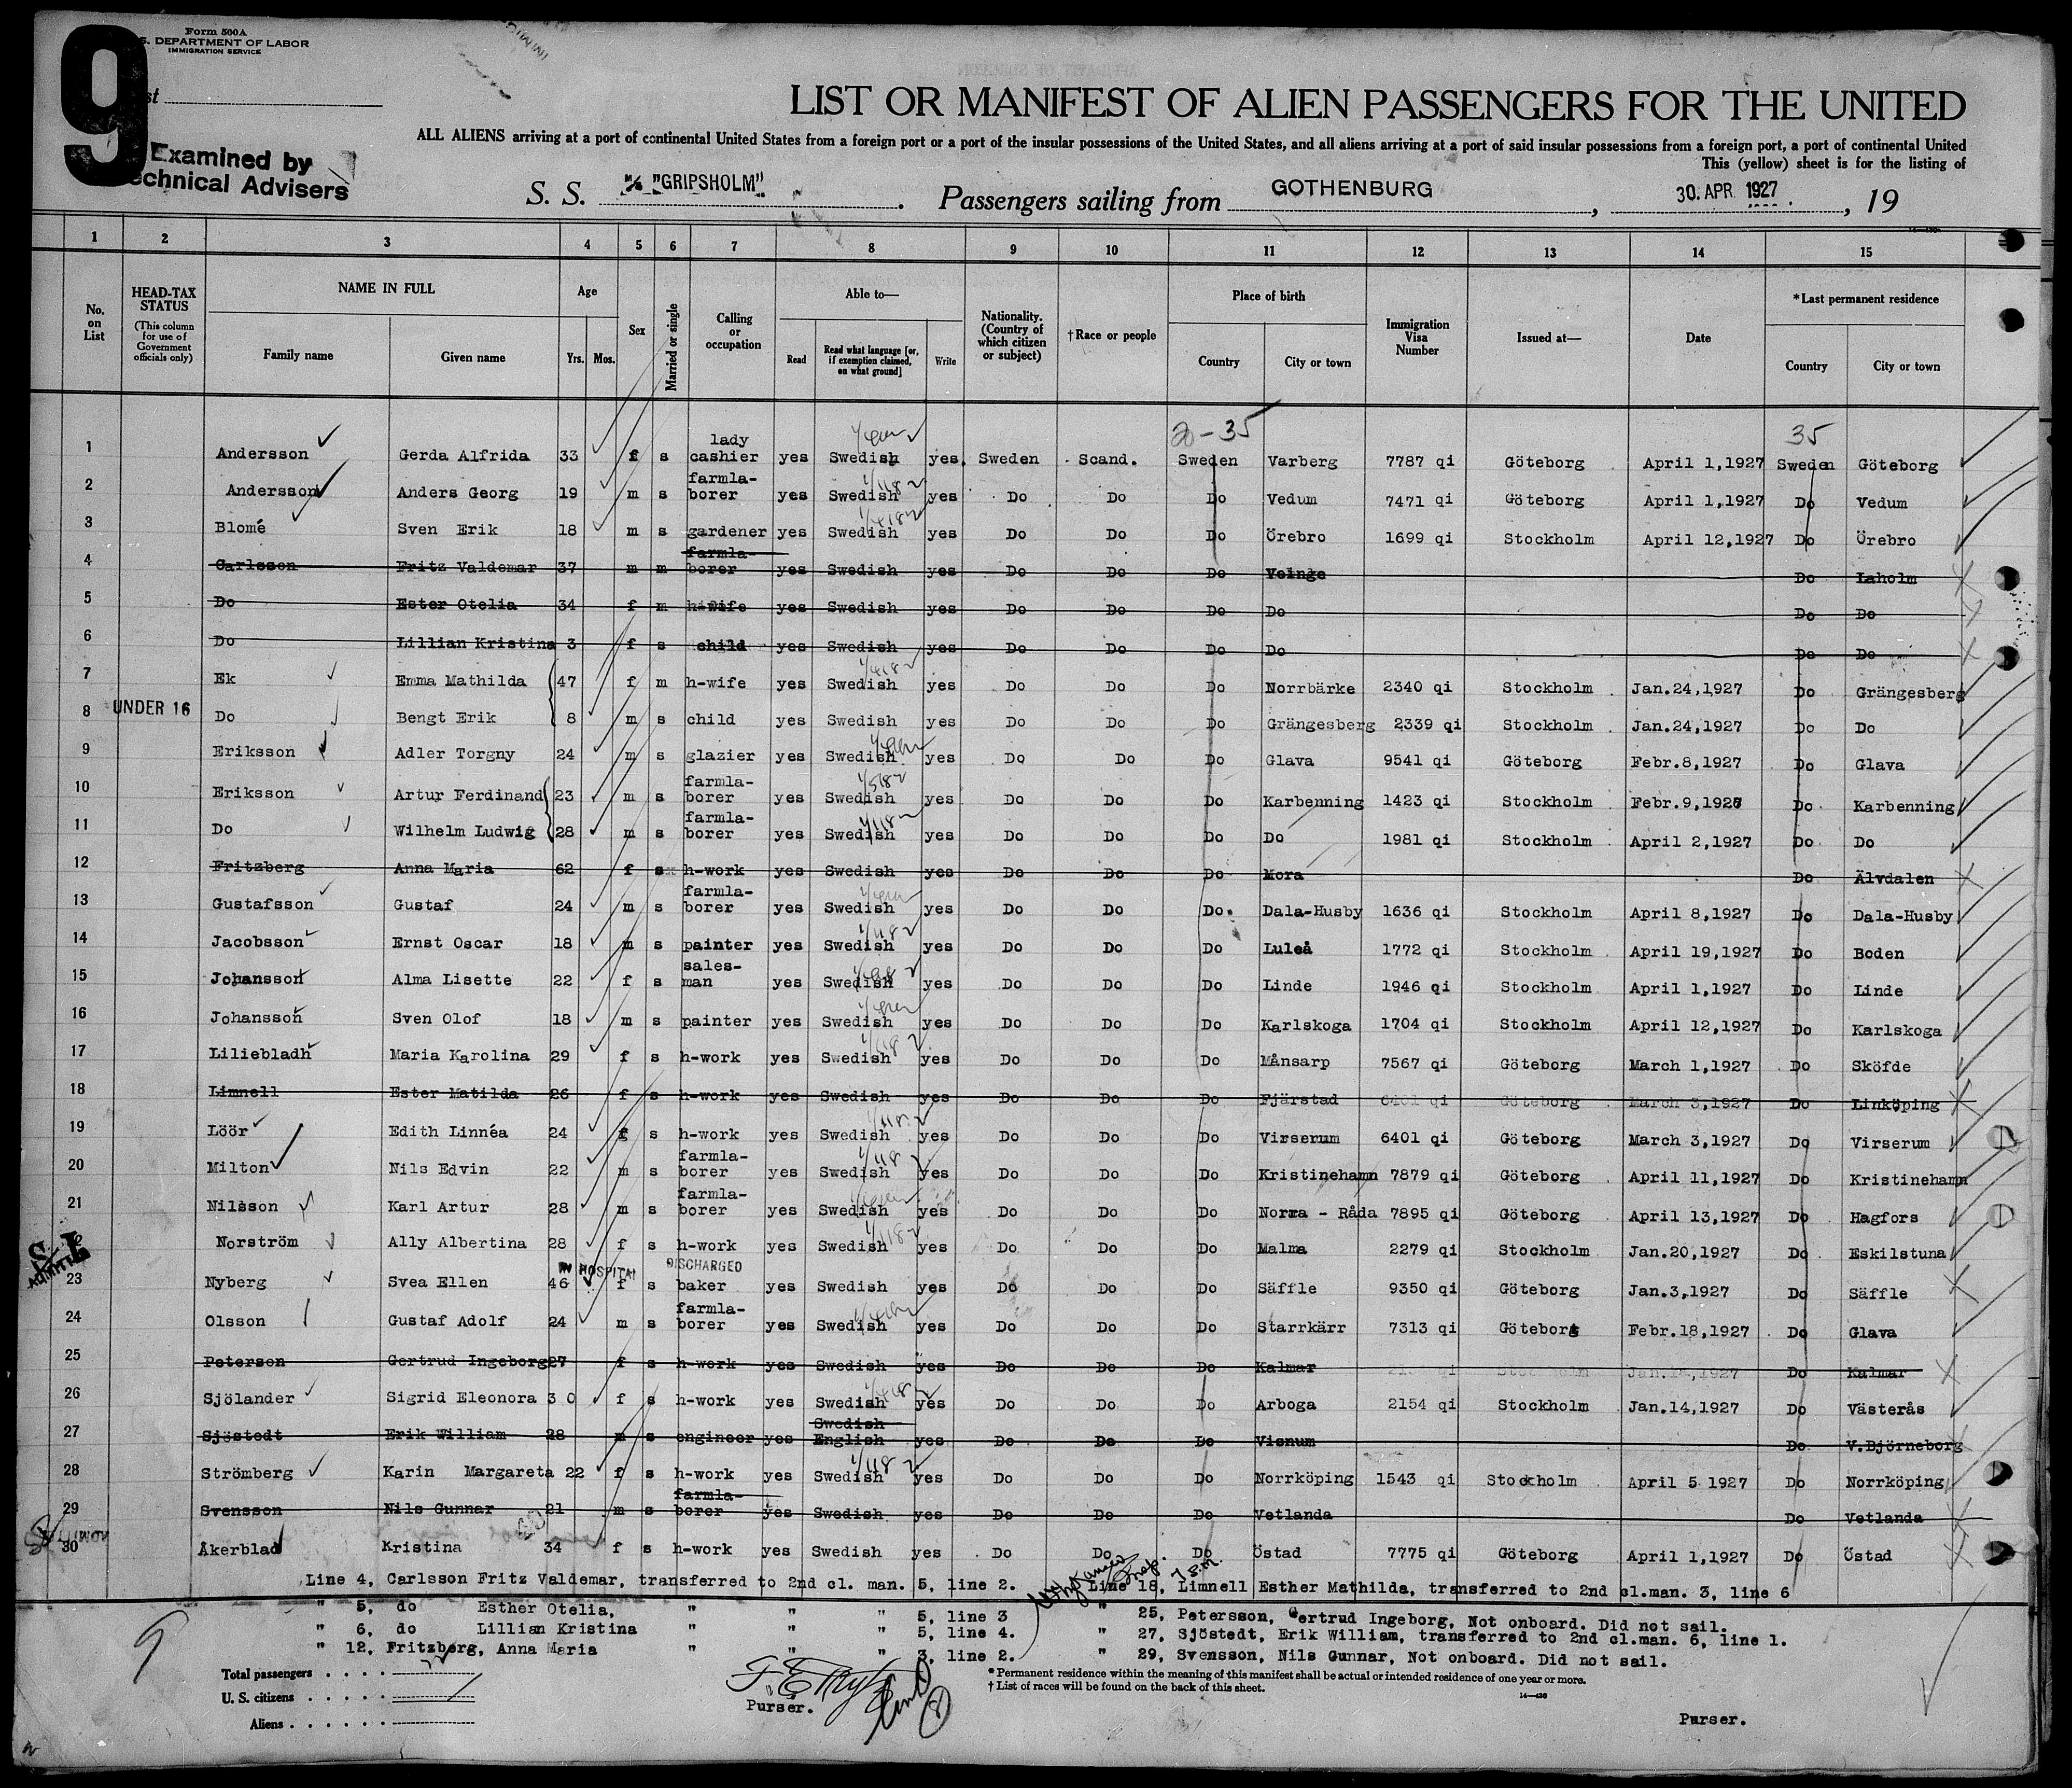 9
Form 500A
S. DEPARTMENT OF LABOR
IMMIGRATION SERVICE
st
LIST OR MANIFEST OF ALIEN PASSENGERS FOR THE UNITED
ALL ALIENS arriving at a port of continental United States from a foreign port or a port of the insular possessions of the United States, and all aliens arriving at a port of said insular possessions from a foreign port, a port of continental United
This (yellow) sheet is for the listing of
Examined by
echnical Advisers
S. S. M/S "GRIPSHOLM" . Passengers sailing from GOTHENBURG , 30. APR 1927 , 19
1 2 3 4 5 6 7 8 9 10 11 12 13 14 15
No. on List
HEAD-TAX STATUS (This column for use of Government officials only)
NAME IN FULL Family name Given name
Age Yrs. Mos.
Sex
Married or single
Calling or occupation
Able to— Read Read what language [or, if exemption claimed, on what ground] Write
Nationality. (Country of which citizen or subject)
†Race or people
Place of birth Country City or town
Immigration Visa Number
Issued at—
Date
*Last permanent residence Country City or town
20-35 35
1 Andersson Gerda Alfrida 33 f s lady cashier yes Swedish yes. Sweden Scand. Sweden Varberg 7787 qi Göteborg April 1,1927 Sweden Göteborg
2 Andersson Anders Georg 19 m s farmla-borer yes Swedish yes Do Do Do Vedum 7471 qi Göteborg April 1,1927 Do Vedum
3 Blomé Sven Erik 18 m s gardener yes Swedish yes Do Do Do Örebro 1699 qi Stockholm April 12,1927 Do Örebro
4 Carlsson Fritz Valdemar 37 m m farmla-borer yes Swedish yes Do Do Do Veinge Do Laholm
5 Do Ester Otelia 34 f m h-wife yes Swedish yes Do Do Do Do Do Do
6 Do Lillian Kristina 3 f s child yes Swedish yes Do Do Do Do Do Do
7 Ek Emma Mathilda 47 f m h-wife yes Swedish yes Do Do Do Norrbärke 2340 qi Stockholm Jan.24,1927 Do Grängesberg
8 UNDER 16 Do Bengt Erik 8 m s child yes Swedish yes Do Do Do Grängesberg 2339 qi Stockholm Jan.24,1927 Do Do
9 Eriksson Adler Torgny 24 m s glazier yes Swedish yes Do Do Do Glava 9541 qi Göteborg Febr.8,1927 Do Glava
10 Eriksson Artur Ferdinand 23 m s farmla-borer yes Swedish yes Do Do Do Karbenning 1423 qi Stockholm Febr.9,1927 Do Karbenning
11 Do Wilhelm Ludwig 28 m s farmla-borer yes Swedish yes Do Do Do Do 1981 qi Stockholm April 2,1927 Do Do
12 Fritzberg Anna Maria 62 f s h-work yes Swedish yes Do Do Do Mora Do Älvdalen
13 Gustafsson Gustaf 24 m s farmla-borer yes Swedish yes Do Do Do. Dala-Husby 1636 qi Stockholm April 8,1927 Do Dala-Husby
14 Jacobsson Ernst Oscar 18 m s painter yes Swedish yes Do Do Do Luleå 1772 qi Stockholm April 19,1927 Do Boden
15 Johansson Alma Lisette 22 f s sales-man yes Swedish yes Do Do Do Linde 1946 qi Stockholm April 1,1927 Do Linde
16 Johansson Sven Olof 18 m s painter yes Swedish yes Do Do Do Karlskoga 1704 qi Stockholm April 12,1927 Do Karlskoga
17 Liliebladh Maria Karolina 29 f s h-work yes Swedish yes Do Do Do Månsarp 7567 qi Göteborg March 1,1927 Do Sköfde
18 Limnell Ester Matilda 26 f s h-work yes Swedish yes Do Do Do Fjärstad qi Göteborg March 3,1927 Do Linköping
19 Löör Edith Linnéa 24 f s h-work yes Swedish yes Do Do Do Virserum 6401 qi Göteborg March 3,1927 Do Virserum
20 Milton Nils Edvin 22 m s farmla-borer yes Swedish yes Do Do Do Kristinehamn 7879 qi Göteborg April 11,1927 Do Kristinehamn
21 Nilsson Karl Artur 28 m s farmla-borer yes Swedish yes Do Do Do Norra - Råda 7895 qi Göteborg April 13,1927 Do Hagfors
S.I. ADMITTED
2 Norström Ally Albertina 28 f s h-work yes Swedish yes Do Do Do Malma 2279 qi Stockholm Jan.20,1927 Do Eskilstuna
IN HOSPITAL DISCHARGED
23 Nyberg Svea Ellen 46 f s baker yes Swedish yes Do Do Do Säffle 9350 qi Göteborg Jan.3,1927 Do Säffle
24 Olsson Gustaf Adolf 24 m s farmla-borer yes Swedish yes Do Do Do Starrkärr 7313 qi Göteborg Febr.18,1927 Do Glava
25 Peterson Gertrud Ingeborg 27 f s h-work yes Swedish yes Do Do Do Kalmar qi Stockholm Do Kalmar
26 Sjölander Sigrid Eleonora 3 0 f s h-work yes Swedish yes Do Do Do Arboga 2154 qi Stockholm Jan.14,1927 Do Västerås
27 Sjöstedt Erik William 28 m s engineer yes Swedish English yes Do Do Do Visnum Do V.Björneborg
28 Strömberg Karin Margareta 22 f s h-work yes Swedish yes Do Do Do Norrköping 1543 qi Stockholm April 5 1927 Do Norrköping
29 Svensson Nils Gunnar 21 m s farmla-borer yes Swedish yes Do Do Do Vetlanda Do Vetlanda
30 Åkerblad Kristina 34 f s h-work yes Swedish yes Do Do Do Östad 7775 qi Göteborg April 1,1927 Do Östad
Line 4, Carlsson Fritz Valdemar, transferred to 2nd cl. man. 5, line 2. Line 18, Limnell Esther Mathilda, transferred to 2nd cl.man. 3, line 6
" 5, do Esther Otelia, " " " 5, line 3 " 25, Petersson, Gertrud Ingeborg, Not onboard. Did not sail.
" 6, do Lillian Kristina " " " 5, line 4. " 27, Sjöstedt, Erik William, transferred to 2nd cl.man. 6, line 1.
" 12, Fritzberg, Anna Maria " " " 3, line 2. " 29, Svensson, Nils Gunnar, Not onboard. Did not sail.
9
Total passengers . . . .
U. S. citizens . . . . .
Aliens . . . . . .
Purser.
* Permanent residence within the meaning of this manifest shall be actual or intended residence of one year or more.
† List of races will be found on the back of this sheet.
Purser.